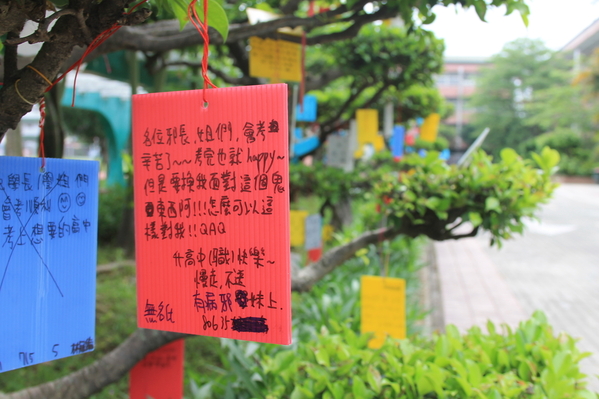 各位邪長、姐們,會考
辛苦了~~考完也就happy~
但是要換我面對這個鬼
東西阿!!!怎麼可以這
樣對我!!QAQ
升高中(職)快樂~
慢走,不送
有病邪妹上.
無名氏 80635
學長
會考順
考上想要的高中
715 5